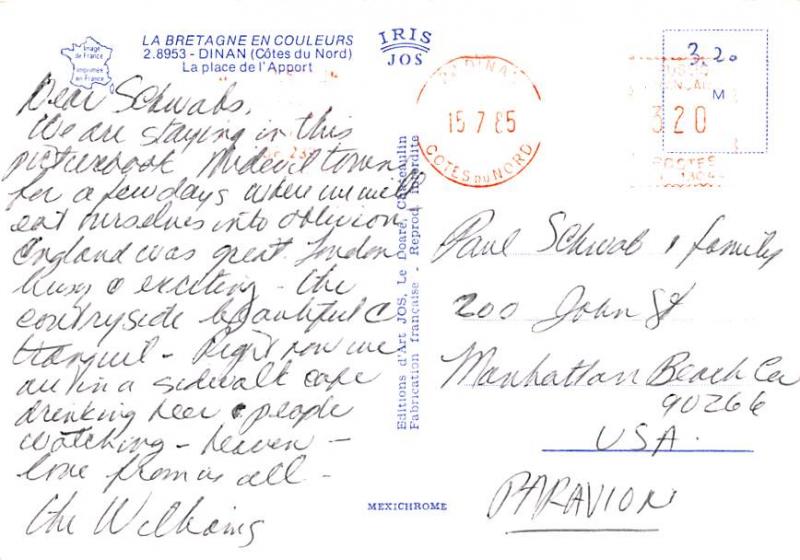 LA BRETAGNE EN COULEURS
2.8953 - DINAN (Côtes du Nord)
La place de l'Apport
Image de France
Imprimée en France
IRIS
JOS
22 DINAN
15 7 85
COTES DU NORD
3,20
M
320
POSTES
Dear Schwabs,
We are staying in this
picturebook Midevil town
for a few days where we will
eat ourselves into oblivion
England was great. London
busy & exciting - the
countryside beautiful &
tranquil - Right now we
are in a sidwalk cafe
drinking beer & people
watching - heaven -
love from us all -
The Wilkins
Editions d'Art JOS, Le Doaré, Châteaulin
Fabrication française - Reprod. interdite
MEXICHROME
Paul Schwab & family
200 John St
Manhattan Beach Ca
90266
USA.
PAR AVION